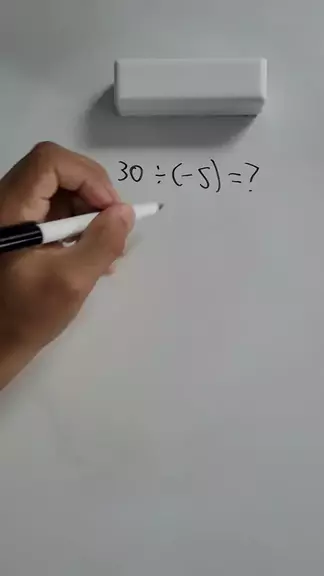 30 ÷ (-5) = ?